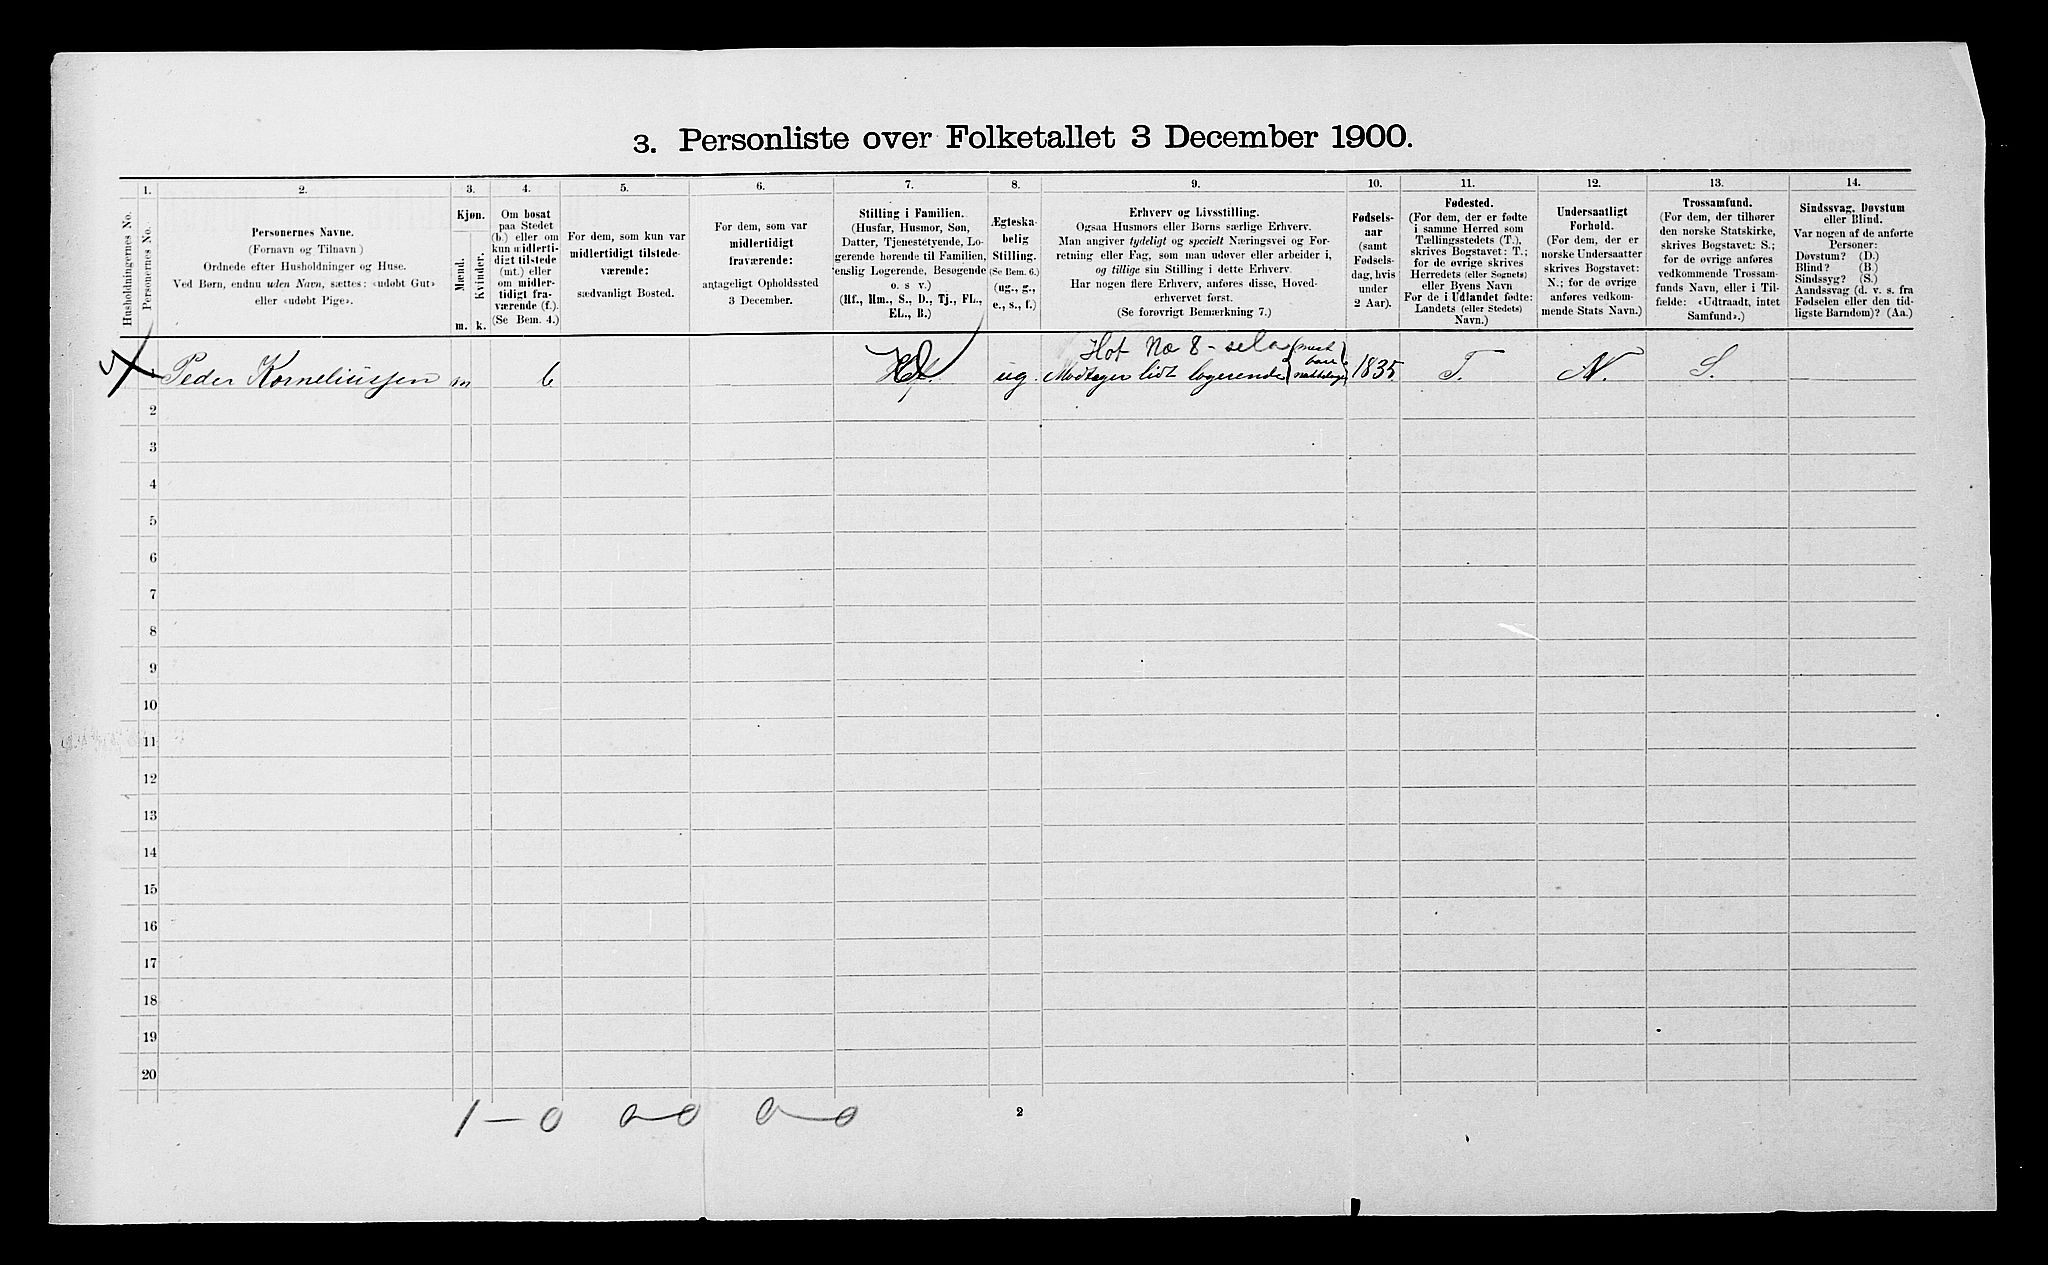 3. Personliste over Folketallet 3 December 1900.
Husholdningernes No.
1.
Personernes No.
2.
Personernes Navne.
(Fornavn og Tilnavn)
Ordnede efter Husholdninger og Huse.
Ved Børn, endnu uden Navn, sættes: «udøbt Gut»
eller «udøbt Pige».
3.
Kjøn.
Mænd.
Kvinder.
m. k.
4.
Om bosat
paa Stedet
(b.) eller om
kun midlerti-
digt tilstede
(mt.) eller
om midler-
tidigt fra-
værende (f.).
(Se Bem. 4.)
5.
For dem, som kun var
midlertidigt tilstede-
værende:
sædvanligt Bosted.
6.
For dem, som var
midlertidigt
fraværende:
antageligt Opholdssted
3 December.
7.
Stilling i Familien.
(Husfar, Husmor, Søn,
Datter, Tjenestetyende, Lo-
gerende hørende til Familien,
enslig Logerende, Besøgende
o. s v.)
(Hf., Hm., S., D., Tj., FL.,
EL., B.)
8.
Ægteska-
belig
Stilling.
(Se Bem. 6.)
(ug., g.,
e., s., f.)
9.
Erhverv og Livsstilling.
Ogsaa Husmors eller Børns særlige Erhverv.
Man angiver tydeligt og specielt Næringsvei og For-
retning eller Fag, som man udøver eller arbeider i,
og tillige sin Stilling i dette Erhverv.
Har nogen flere Erhverv, anføres disse, Hoved-
erhvervet først.
(Se forøvrigt Bemærkning 7.)
10.
Fødsels-
aar
(samt
Fødsels-
dag, hvis
under
2 Aar).
11.
Fødested.
(For dem, der er fødte
i samme Herred som
Tællingsstedets (T.),
skrives Bogstavet: T.;
for de øvrige skrives
Herredets (eller Sognets)
eller Byens Navn
For de i Udlandet fødte:
Landets (eller Stedets)
Navn.)
12.
Undersaatligt
Forhold.
(For dem, der er
norske Undersaatter
skrives Bogstavet:
N.; for de øvrige
anføres vedkom-
mende Stats Navn.)
13.
Trossamfund.
(For dem, der tilhører
den norske Statskirke,
skrives Bogstavet: S.;
for de øvrige anføres
vedkommende Trossam-
funds Navn, eller i Til-
fælde: «Udtraadt, intet
Samfund».)
14.
Sindssvag, Døvstum
eller Blind.
Var nogen af de anførte
Personer:
Døvstum? (D.)
Blind? (B.)
Sindssyg? (S.)
Aandssvag (d. v. s. fra
Fødselen eller den tid-
ligste Barndom)? (Aa.)
Peder Korneliussen m b Hf. ug. Modtager lidt logerende 1835 T. N. S.
2
3
4
5
6
7
8
9
10
11
12
13
14
15
16
17
18
19
20
1 – 0 0 – 0 0 – 0
2